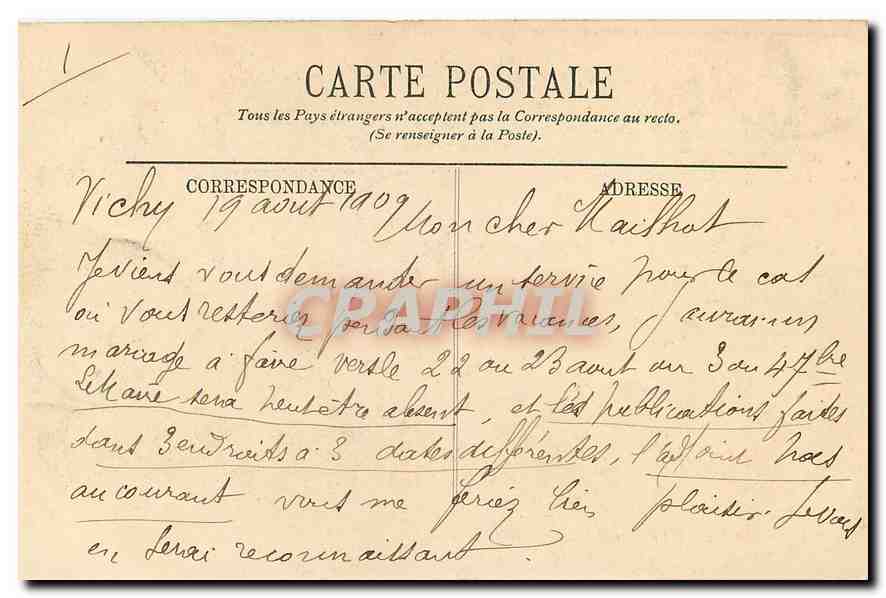 1
CARTE POSTALE
Tous les Pays étrangers n'acceptent pas la Correspondance au recto.
(Se renseigner à la Poste).
CORRESPONDANCE
ADRESSE
Vichy 19 aout 1909 Mon cher Mailhot
Je viens vous demander un service pour le cas
où vous resteriez pendant les vacances, j'aurais un
mariage à faire vers le 22 ou 23 aout ou 3 ou 4 7bre
Le Maire sera peut être absent, et les publications faites
dans 3 endroits à 3 dates différentes, l'adjoint pas
au courant vous me feriez bien plaisir. Je vous
en serai reconnaissant.
CPAPHIL